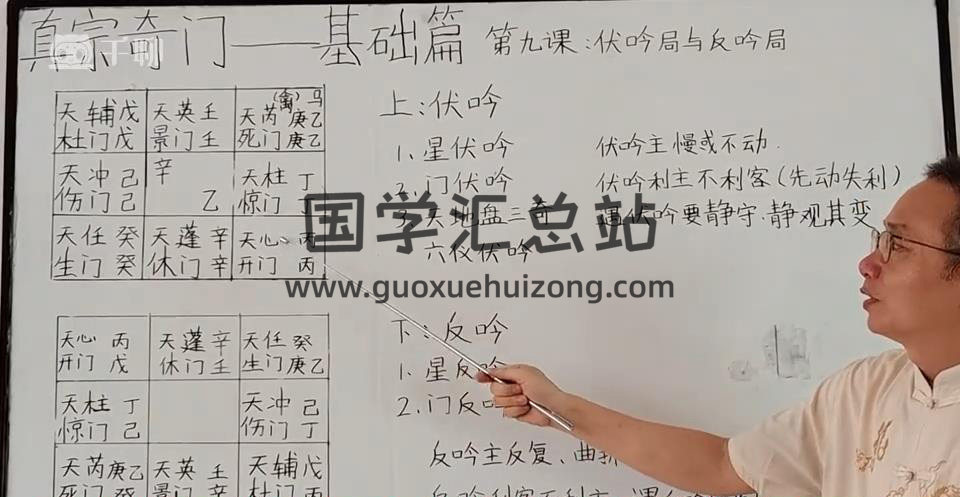 真宗奇门——基础篇 第九课:伏吟局与反吟局
千聊
(禽)马
天辅戊 天英壬 天芮庚乙
杜门戊 景门壬 死门庚乙
天冲己 辛 天柱丁
伤门己 乙 惊门丁
天任癸 天蓬辛 天心丙
生门癸 休门辛 开门丙
上:伏吟
1、星伏吟 伏吟主慢或不动.
2、门伏吟 伏吟利主不利客(先动失利)
3、天地盘三奇 遇伏吟要静守.静观其变
六仪伏吟
国学汇总站
www.guoxuehuizong.com
天心丙 天蓬辛 天任癸
开门戊 休门壬 生门庚乙
天柱丁 天冲己
惊门己 伤门丁
天芮庚乙 天英壬 天辅戊
死门癸 景门辛 杜门丙
下:反吟
1、星反吟
2、门反吟
反吟主反复、曲折
反吟利客不利主